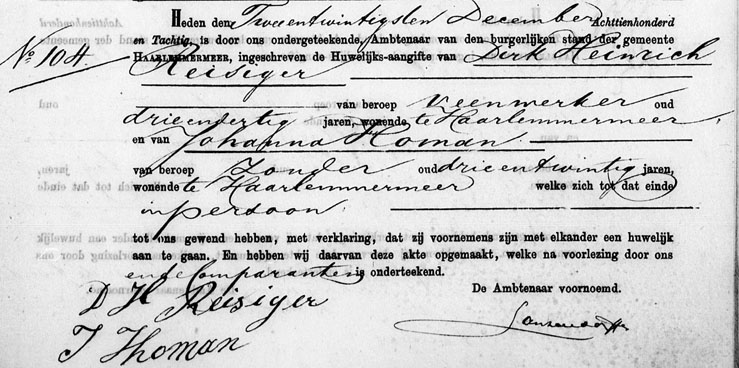 Heden den Tweeentwintigsten December Achttienhonderd
en Tachtig, is door ons ondergeteekende, Ambtenaar van den burgerlijken stand der gemeente
No. 104 HAARLEMMERMEER, ingeschreven de Huwelijks-aangifte van Dirk Heinrich
Reisiger
van beroep Veenwerker oud
drieendertig jaren, wonende te Haarlemmermeer,
en van Johanna Homan
van beroep zonder oud drieentwintig jaren,
wonende te Haarlemmermeer welke zich tot dat einde
in persoon
tot ons gewend hebben, met verklaring, dat zij voornemens zijn met elkander een huwelijk
aan te gaan. En hebben wij daarvan deze akte opgemaakt, welke na voorlezing door ons
en de Comparanten is onderteekend.
De Ambtenaar voornoemd.
D H Reisiger
J Homan